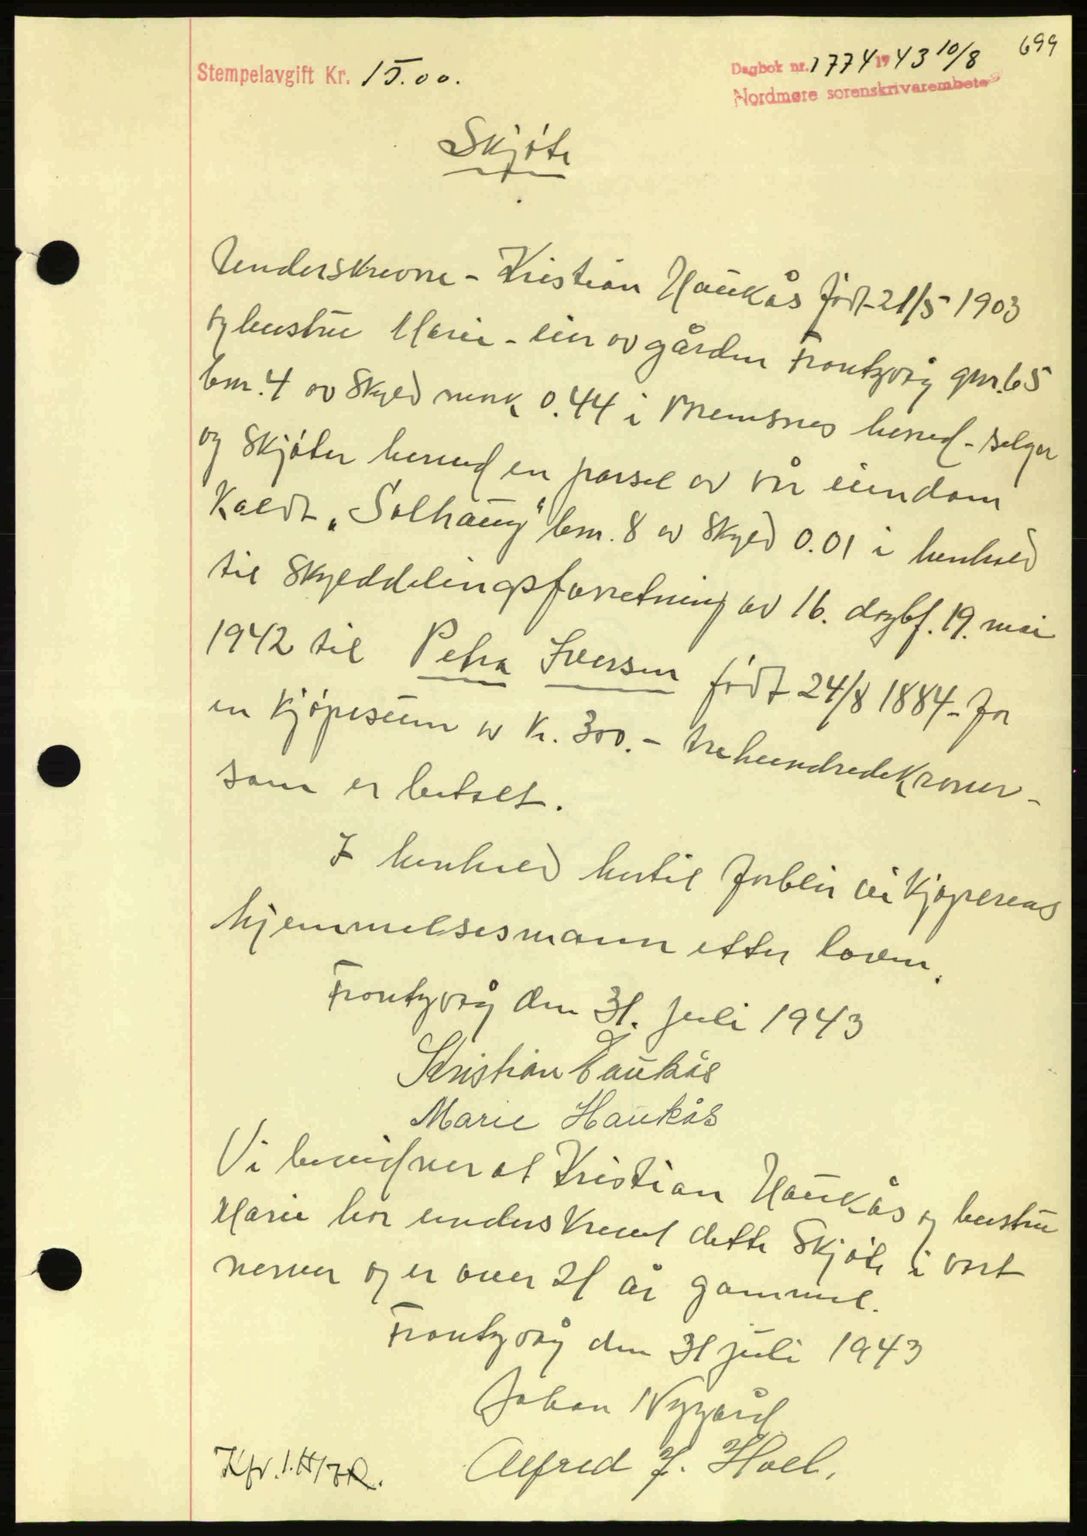 699
Stempelavgift Kr. 15.00.
Dagbok nr. 1774 1943 10/8
Nordmøre sorenskrivarembete
Skjøte
Underskrevne - Kristian Haukås født 21/5 1903
og hustru Marie - eier av gården gnr. 65
bnr. 4 av skyld mark 0.44 i Bremsnes herred - selger
og skjøter herved en parsel av vår eiendom
kaldt "Solhaug" bnr. 8 av skyld 0.01 i henhold
til skylddelingsforretning av 16. dagbf. 19. mai
1942 til Petra Iversen født 24/8 1884 - for
en kjøpesum av kr. 300.- trehundredekroner -
som er betalt.
I henhold hertil forblir vi kjøperens
hjemmelsesmann etter loven.
den 31. juli 1943
Kristian Haukås
Marie Haukås
Vi bevidner at Kristian Haukås og hustru
Marie har underskrevet dette skjøte i vort
nerver og er over 21 år gammel.
den 31 juli 1943
Johan Nygård
Alfred J. Hoel.
Kfr. I.H/